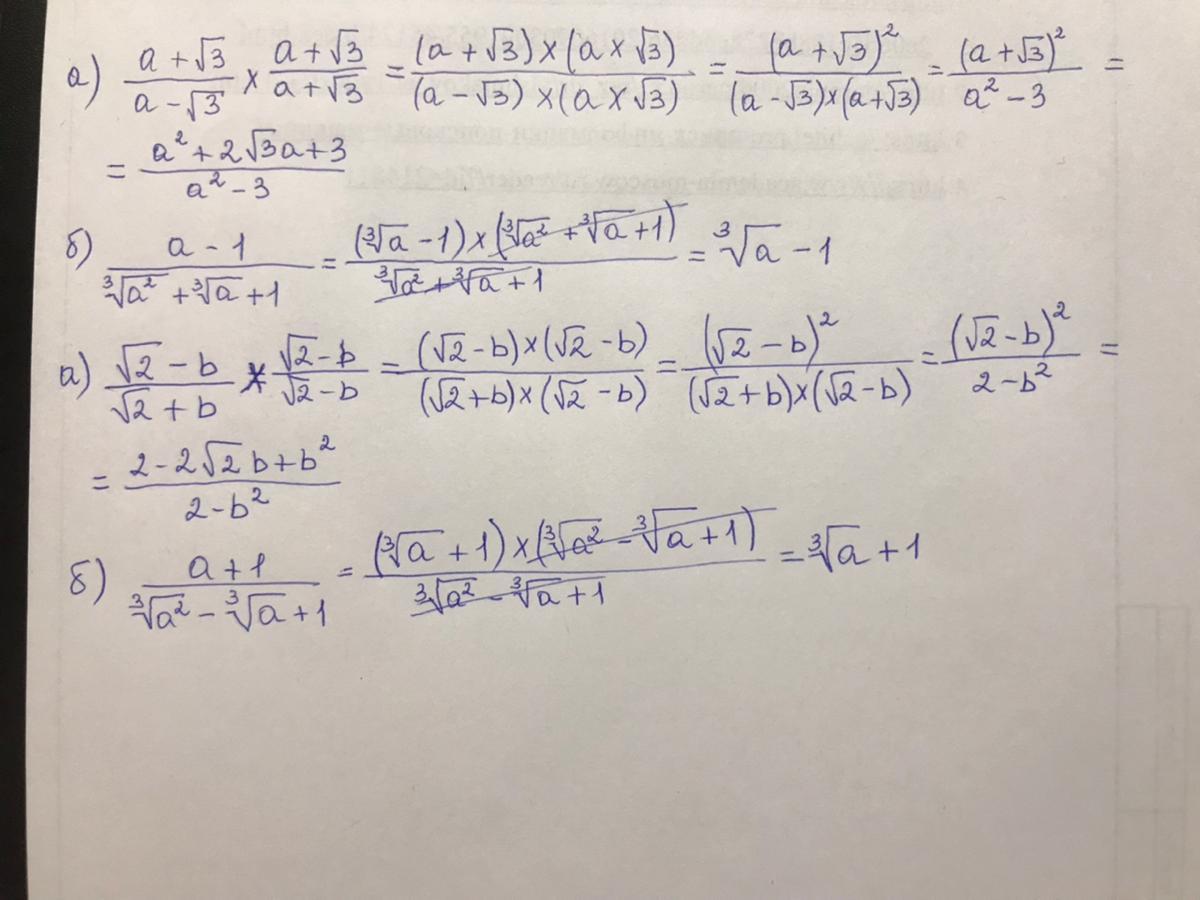 а) (a + √3)/(a - √3) × (a + √3)/(a + √3) = ((a + √3) × (a × √3))/((a - √3) × (a × √3)) = (a + √3)²/((a - √3) × (a + √3)) = (a + √3)²/(a² - 3) =
= (a² + 2√3a + 3)/(a² - 3)
б) (a - 1)/(∛a² + ∛a + 1) = ((∛a - 1) × (∛a² + ∛a + 1))/(∛a² + ∛a + 1) = ∛a - 1
а) (√2 - b)/(√2 + b) × (√2 - b)/(√2 - b) = ((√2 - b) × (√2 - b))/((√2 + b) × (√2 - b)) = (√2 - b)²/((√2 + b) × (√2 - b)) = (√2 - b)²/(2 - b²) =
= (2 - 2√2b + b²)/(2 - b²)
б) (a + 1)/(∛a² - ∛a + 1) = ((∛a + 1) × (∛a² - ∛a + 1))/(∛a² - ∛a + 1) = ∛a + 1